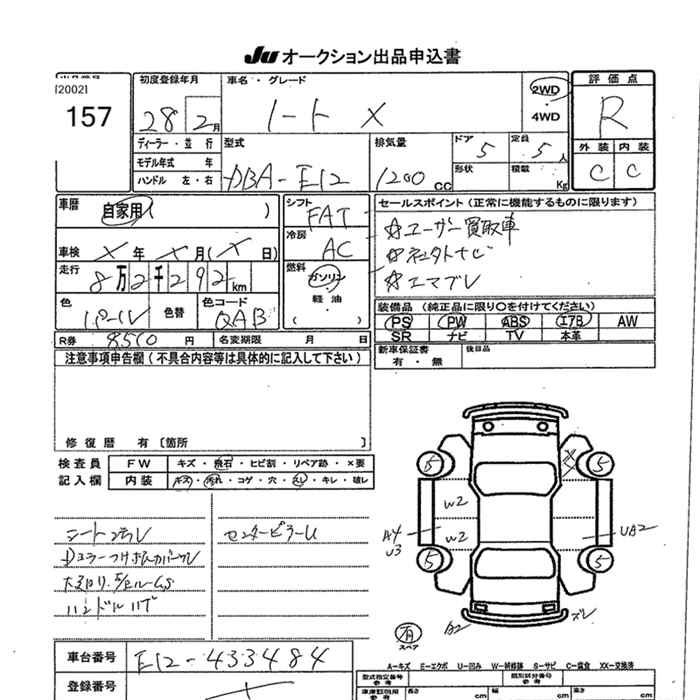 JU オークション出品申込書
[2002]
157
初度登録年月
28 2月
車名・グレード
ノート X
2WD
・
4WD
評価点
R
外装 内装
C C
ディーラー・並行
モデル年式 年
ハンドル 左・右
型式
DBA-E12
排気量
1200cc
ドア
5
形状
定員
5人
積載
Kg
車歴
自家用( )
車検 X年X月(X日)
走行 8万2千292km
色
パール
色替
色コード
QAB
シフト
FAT
冷房
AC
燃料
ガソリン
・
軽油
( )
セールスポイント(正常に機能するものに限ります)
☆ユーザー買取車
☆社外ナビ
☆エマブレ
装備品(純正品に限り○を付けてください)
PS PW ABS エアB AW
SR ナビ TV 本革
R券 8510円 名変期限 月 日
新車保証書
有・無
後日品
注意事項申告欄(不具合内容等は具体的に記入して下さい)
修復歴 有〔箇所 〕
検査員
記入欄
FW キズ・飛石・ヒビ割・リペア跡・×要
内装 キズ・汚れ・コゲ・穴・スレ・キレ・破レ
センターピラーU
ハンドル
5 5
X
W2
W2
A4
U3
UA2
5 5
A2
ズレ
有
スペア
車台番号 E12-433484
登録番号
A-キズ E-エクボ U-凹み W-補修跡 S-サビ C-腐食 XX-交換済
型式指定番号
参考
類別区分番号
参考
車庫証明用
参考
長さ cm
幅 cm
高さ cm